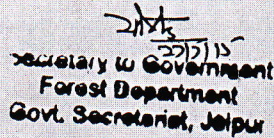 Secretary to Government
Forest Department
Govt. Secretariat, Jaipur